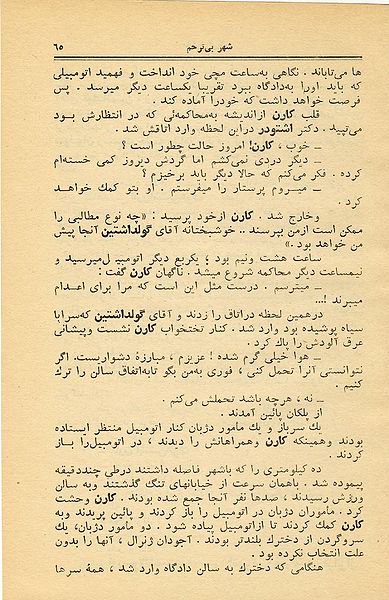 شهر بی‌ترحم ۶۵
ها می‌تاباند. نگاهی به‌ساعت مچی خود انداخت و فهمید اتومبیلی
که باید اورا به‌دادگاه ببرد تقریبا یکساعت دیگر میرسد . پس
فرصت خواهد داشت که خودرا آماده کند .
قلب کارن ازاندیشه به‌محاکمه‌ئی که در انتظارش بود
می‌تپید . دکتر اشتودر دراین لحظه وارد اتاقش شد .
ــ خوب ، کارن! امروز حالت چطور است ؟
ــ دیگر دردی نمی‌کشم اما گردش دیروز کمی خسته‌ام
کرده . فکر می‌کنم که حالا دیگر باید برخیزم ؟
ــ میـروم پرستار را میفرستم . او بتو کمك خواهـد
کرد .
وخارج شد . کارن ازخود پرسید : «چه نوع مطالبی را
ممکن است ازمن بپرسند .. خوشبختانه آقای گولداشتین آنجا پیش
من خواهد بود .»
ساعت هشت ونیم بود ؛ یکربع دیگر اتومبیل میرسید و
نیمساعت دیگر محاکمه شروع میشد . ناگهان کارن گفت :
ــ میترسم . درست مثل این است که مرا برای اعدام
میبرند !...
درهمین لحظه دراتاق را زدند و آقای گولداشتین که‌سراپا
سیاه پوشیده بود وارد شد . کنار تختخواب کارن نشست وپیشانی
عرق آلودش را پاك کرد .
ــ هوا خیلی گرم شده ! عزیزم ، مبارزهٔ دشواریست. اگر
نتوانستی آنرا تحمل کنی ، فوری به‌من بگو تابه‌اتفاق سالن را ترك
کنیم .
ــ نه ، هرچه باشد تحملش می‌کنم .
از پلکان پائین آمدند .
یك سرباز و یك مامور دژبان کنار اتومبیل منتظر ایستاده
بودند وهمینکه کارن وهمراهانش را دیدند ، در اتومبیل‌را بـاز
کردند .
ده کیلومتری را که باشهر فاصله داشتند درطی چنددقیقه
پیموده شد . باهمان سرعت از خیابانهای تنگ گذشتند وبه سالن
ورزش رسیدند ، صدها نفر آنجا جمع شده بودند . کارن وحشت
کرد . ماموران دژبان در اتومبیل را باز کردند و پائین پریدند وبه
کارن کمك کردند تا ازاتومبیل پیاده شود . دو مامور دژبان، یك
سروگردن از دخترك بلندتر بودند . آجودان ژنرال ، آنها را بدون
علت انتخاب نکرده بود .
هنگامی که دخترك به سالن دادگاه وارد شد ، همهٔ سرها